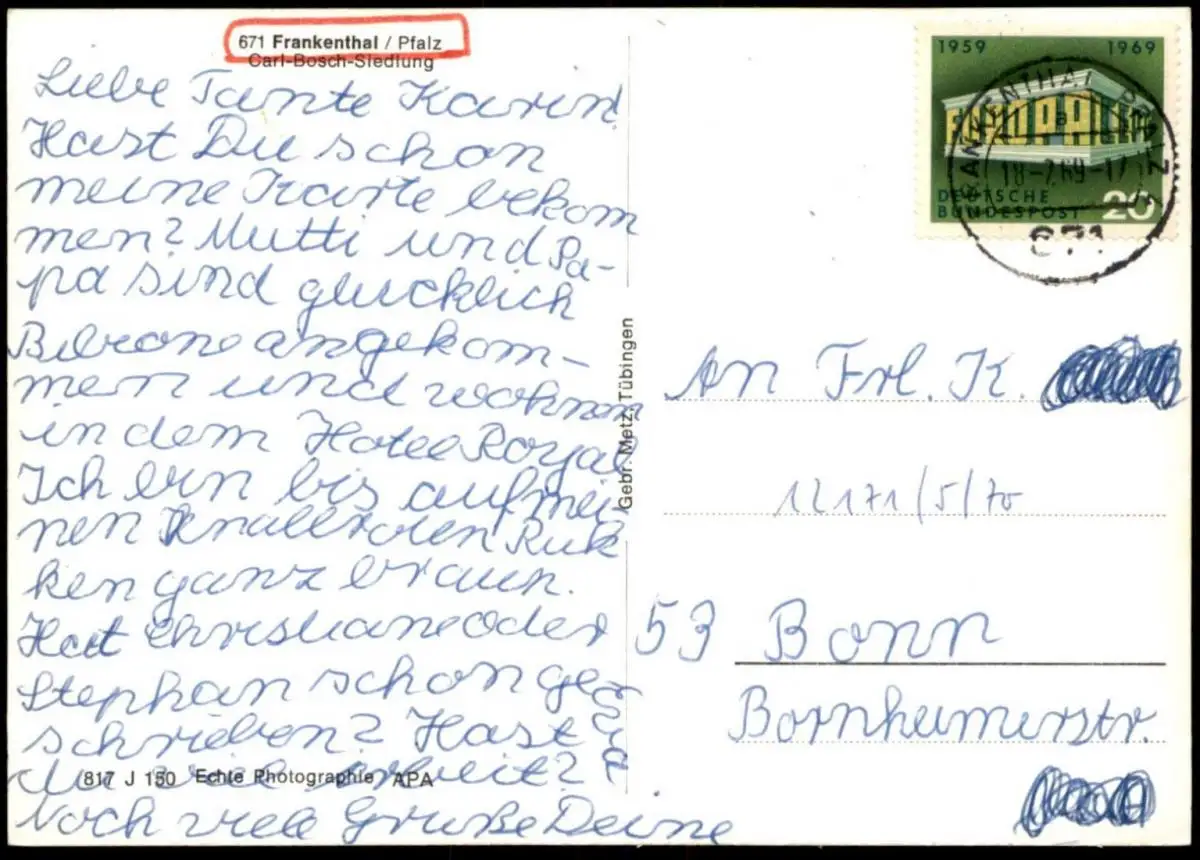 671 Frankenthal / Pfalz
Carl-Bosch-Siedlung
Liebe Tante Karin!
Hast Du schon
meine Karte bekom
men? Mutti und Pa-
pa sind glücklich
angekom-
men und wohnen
in dem Hotel Royal
Ich bin bis auf mei-
nen Knallroten Rük
ken ganz braun.
Hat Christiane oder
Stephan schon ge
schrieben? Hast
du viel Arbeit?
Noch viele Grüße Deine
817 J 150 Echte Photographie APA
Gebr. Metz, Tübingen
1959 1969
EUROPA CEPT
DEUTSCHE
BUNDESPOST 20
FRANKENTHAL PFALZ
18-7.69-17
671
An Frl. K.
12171/5/70
53 Bonn
Bornheimerstr.